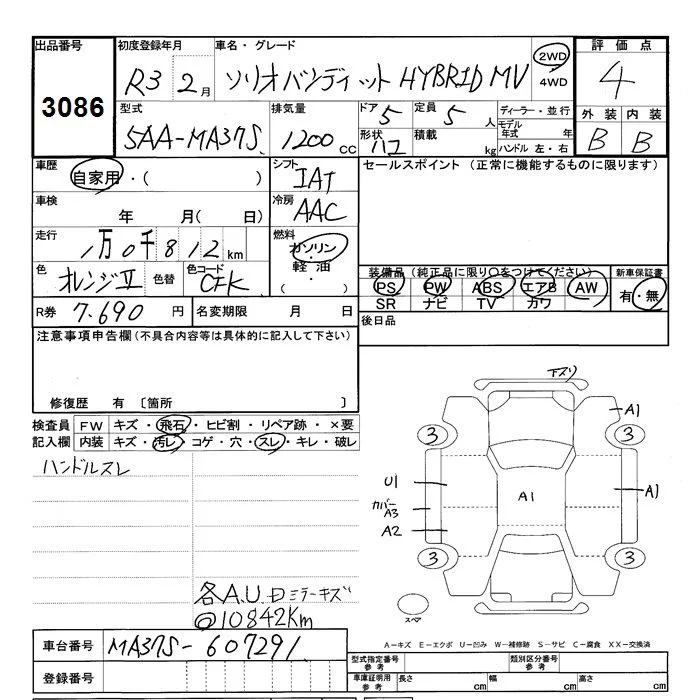 出品番号 初度登録年月 車名・グレード 評価点
3086 R3 2月 ソリオバンディット HYBRID MV 2WD 4WD 4
型式 排気量 ドア 5 定員 5人 ディーラー・並行 外装 内装
5AA-MA37S 1200cc 形状 ハコ 積載 kg モデル年式 年 ハンドル 左・右 B B
車歴 自家用・( ) シフト IAT セールスポイント (正常に機能するものに限ります)
車検 年 月( 日) 冷房 AAC
走行 1万0千812km 燃料 ガソリン・軽油・( )
色 オレンジⅡ 色替 色コード CFK 装備品(純正品に限り○をつけてください) 新車保証書
PS PW ABS エアB AW 有・無
SR ナビ TV カワ
R券 7.690円 名変期限 月 日 後日品
注意事項申告欄(不具合内容等は具体的に記入して下さい)
修復歴 有 〔箇所 〕
検査員 FW キズ・飛石・ヒビ割・リペア跡・×要
記入欄 内装 キズ・汚レ・コゲ・穴・スレ・キレ・破レ
ハンドルスレ
下スリ
A1
3 3
U1 A1 A1
カバーA3
A2
3 3
スペア
各A.U. Dミラーキズ
@10842Km
A-キズ E-エクボ U-凹み W-補修跡 S-サビ C-腐食 XX-交換済
車台番号 MA37S-607291
型式指定番号 参考 類別区分番号 参考
登録番号 車庫証明用 参考 長さ cm 幅 cm 高さ cm